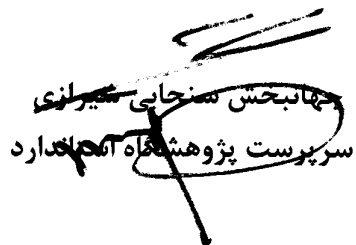 جهانبخش سنجابی شیرازی
سرپرست پژوهشگاه استاندارد